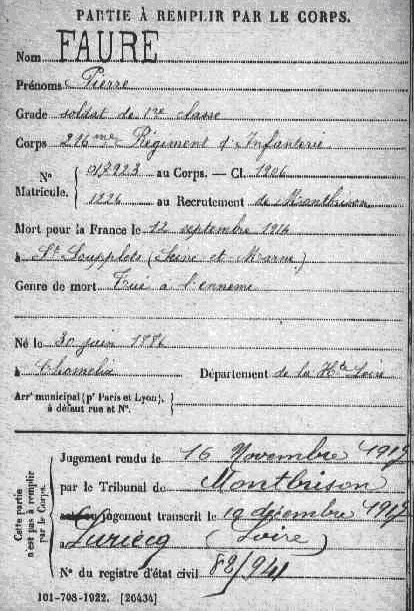 PARTIE À REMPLIR PAR LE CORPS.
Nom FAURE
Prénoms Pierre
Grade soldat de 1re classe
Corps 216me Régiment d'Infanterie
N° Matricule. { 017923 au Corps. — Cl. 1906
1226 au Recrutement de Montbrison
Mort pour la France le 12 septembre 1914
à St Soupplets (Seine et Marne)
Genre de mort Tué à l'ennemi
Né le 30 juin 1886
à Chomelix Département de la Hte Loire
Arrt municipal (pr Paris et Lyon), à défaut rue et N°.
Cette partie n'est pas à remplir par le Corps.
Jugement rendu le 16 Novembre 1917
par le Tribunal de Montbrison
jugement transcrit le 19 décembre 1917
à Luriecq (Loire)
N° du registre d'état civil 82/941
101-708-1922. [26434]